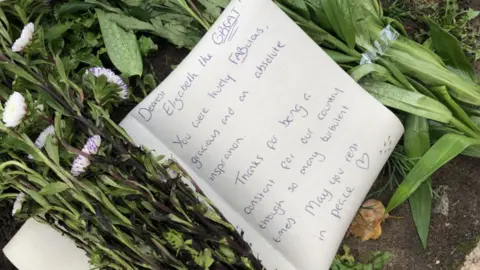 Dearest
Elizabeth the GREAT!
You were lively, FABulous,
gracious and an absolute
inspiration.
Thanks for being a
constant for our country
though so many turbulent
times. May you rest
in peace ♡ xxx